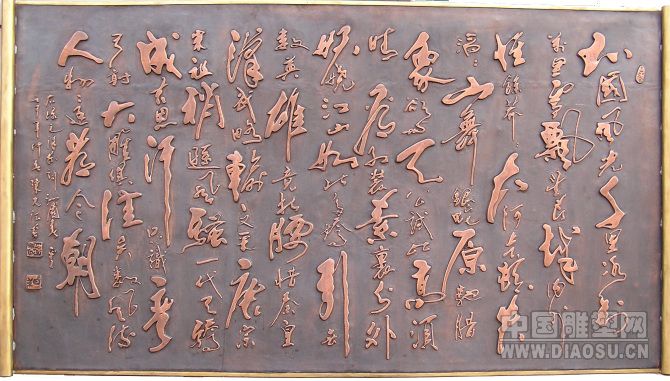 北国风光千里冰封
萬里雪飄望長城内外
惟餘莽莽大河上下頓失
滔滔山舞銀蛇原馳蜡
象欲与天公試比高須
晴日看红装素裹分外
妖娆江山如此多嬌引无
數英雄竞折腰惜秦皇
漢武略輸文采唐宗
宋祖稍遜风騷一代天驕
成吉思汗只識弯
弓射大雕俱往矣數風流
人物还看今朝
中国雕塑网
WWW.DIAOSU.CN